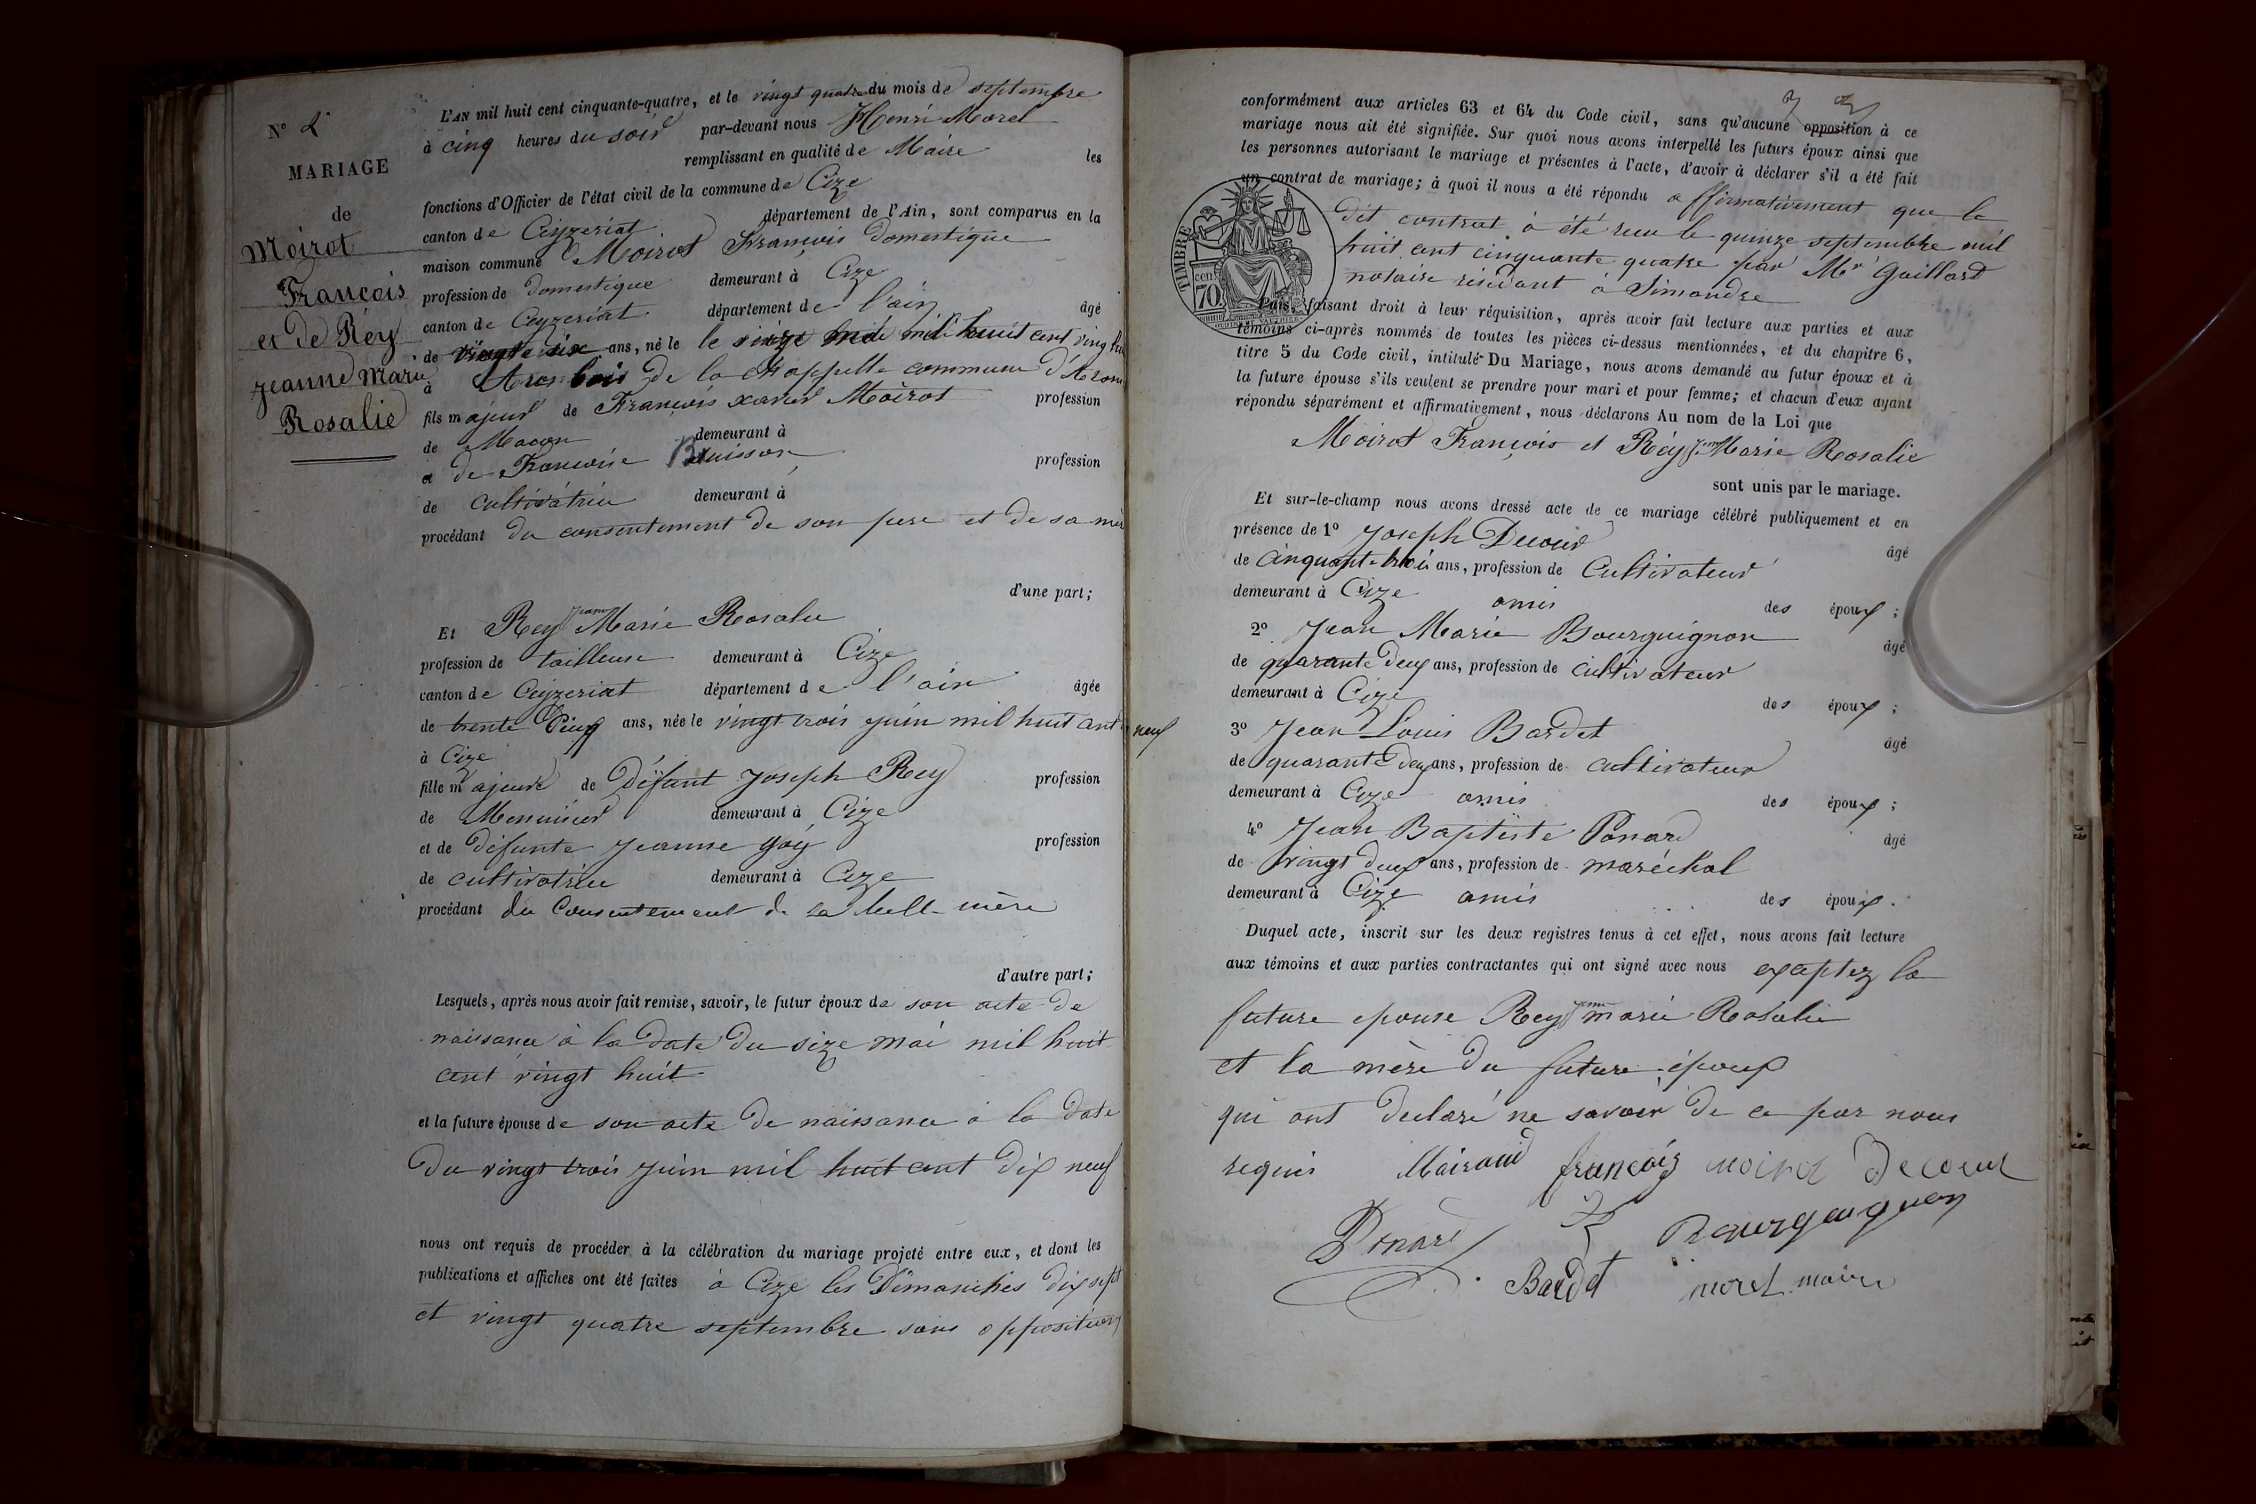 N° 2
MARIAGE
de
Moirot
François
et de Réy
jeanne Marie
Rosalie
L'AN mil huit cent cinquante-quatre, et le vingt quatre du mois de septembre
à cinq heures du soir par-devant nous Henri Morel
remplissant en qualité de Maire les
fonctions d'Officier de l'état civil de la commune de Cize
canton de Ceyzeriat département de l'Ain, sont comparus en la
maison commune Moirot François domestique
profession de domestique demeurant à Cize
canton de Ceyzeriat département de l'ain âgé
de vingt six ans, né le le seize mai mil huit cent vingt huit
à de la chappelle commune d'
fils majeur de François xavier Moirot profession
de Maçon demeurant à
et de Françoise Buisson profession
de cultivatrice demeurant à
procédant du consentement de son pere et de sa mère
d'une part;
Et Rey Jeanne Marie Rosalie
profession de tailleuse demeurant à Cize
canton de Ceyzeriat département de l'ain âgée
de trente Cinq ans, née le vingt trois juin mil huit cent dix neuf
à Cize
fille majeure de Défunt Joseph Rey profession
de Menuisier demeurant à Cize
et de défunte Jeanne Goÿ profession
de cultivatrice demeurant à Cize
procédant du Consentement de sa belle mère
d'autre part;
Lesquels, après nous avoir fait remise, savoir, le futur époux de son acte de
naissance à la date du size mai mil huit
cent vingt huit
et la future épouse de son acte de naissance à la date
Du vingt trois juin mil huit cent dix neuf
nous ont requis de procéder à la célébration du mariage projeté entre eux, et dont les
publications et affiches ont été faites à Cize les Dimanches dix sept
et vingt quatre septembre sans opposition
conformément aux articles 63 et 64 du Code civil, sans qu'aucune opposition à ce
mariage nous ait été signifiée. Sur quoi nous avons interpellé les futurs époux ainsi que
les personnes autorisant le mariage et présentes à l'acte, d'avoir à déclarer s'il a été fait
un contrat de mariage; à quoi il nous a été répondu affirmativement que le
dit contrat à été recu le quinze septembre mil
huit cent cinquante quatre par Mr Gaillard
notaire résidant à Simandre
TIMBRE
cen
70
Puis, faisant droit à leur réquisition, après avoir fait lecture aux parties et aux
témoins ci-après nommés de toutes les pièces ci-dessus mentionnées, et du chapitre 6,
titre 5 du Code civil, intitulé Du Mariage, nous avons demandé au futur époux et à
la future épouse s'ils veulent se prendre pour mari et pour femme; et chacun d'eux ayant
répondu séparément et affirmativement, nous déclarons Au nom de la Loi que
Moirot François et Réy Jeanne Marie Rosalie
sont unis par le mariage.
Et sur-le-champ nous avons dressé acte de ce mariage célébré publiquement et en
présence de 1° Joseph Decour âgé
de Cinquante trois ans, profession de Cultivateur
demeurant à Cize amis des époux ;
2° Jean Marie Bourguignon âgé
de quarante deux ans, profession de cultivateur
demeurant à Cize des époux ;
3° Jean Louis Bardet âgé
de quarante deux ans, profession de cultivateur
demeurant à Cize amis des époux ;
4° Jean Baptiste Ponard âgé
de vingt deux ans, profession de maréchal
demeurant à Cize amis des époux .
Duquel acte, inscrit sur les deux registres tenus à cet effet, nous avons fait lecture
aux témoins et aux parties contractantes qui ont signé avec nous exaptez la
future epouse Rey Jeanne marie Rosalie
et la mère du future époux
qui ont declaré ne savoir de ce par nous
requis Mairaud françois moirot Decoeur
Ponard Bourguignon
Bardet morel maire